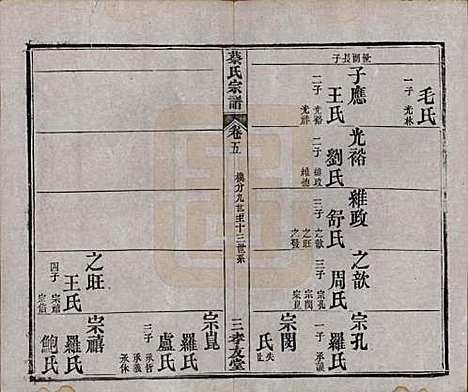 毛氏
一子 光林
世爵長子
子應
王氏
二子 光裕 光祥
光裕
劉氏
二子 維政 維德
維政
舒氏
二子 之歆 之旺 之發
之歆
周氏
三子 宗孔 宗閔 宗崑
宗孔
羅氏
一子 承謨
宗閔
氏 失 址
宗崑
羅氏
盧氏
三子 承哲 承義 承休
之旺
王氏
四子 宗禧 宗信
宗禧
羅氏
鮑氏
蔡氏宗譜
卷五
機分九世至十三世系
三
孝友堂